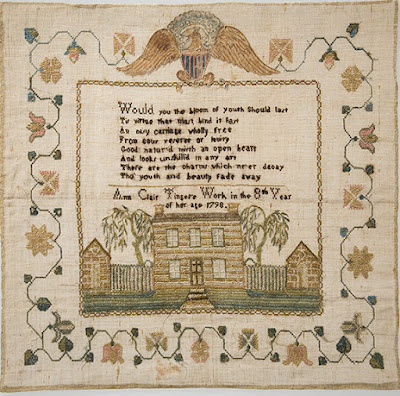 Would you the bloom of youth Should last
Tis virtue that must bind it fast
An easy carriage wholly free
From sour reserve or levity
Good natur'd mirth an open heart
And looks unskilld in any art
These are the charms which ne'er decay
Tho' youth and beauty fade away
Ann Clair Tingers Work in the 8th Year
of her age 1798.